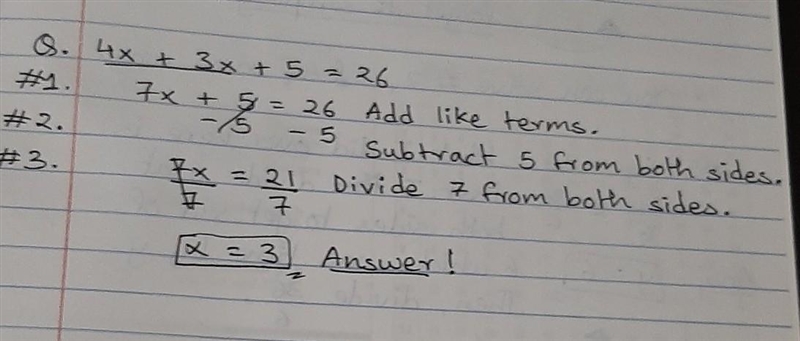 Q. 4x + 3x + 5 = 26
#1. 7x + 5 = 26 Add like terms.
#2. -5 -5 Subtract 5 from both sides.
#3. 7x/7 = 21/7 Divide 7 from both sides.
x = 3 Answer!